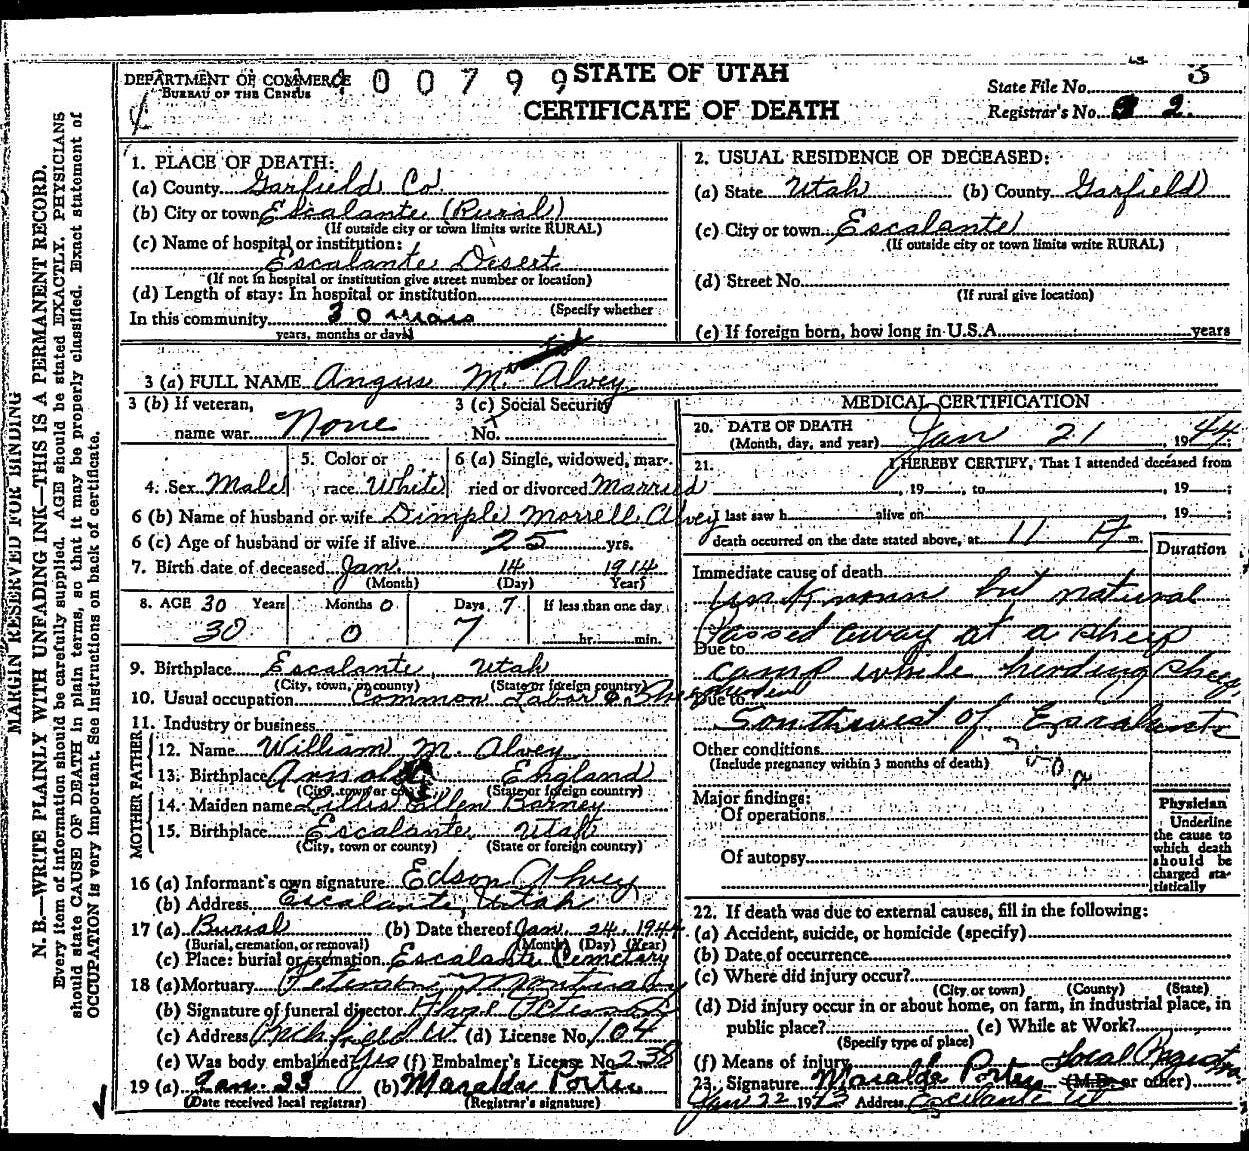 DEPARTMENT OF COMMERCE
BUREAU OF THE CENSUS
400799
STATE OF UTAH
CERTIFICATE OF DEATH
State File No. 3
Registrar's No. 2.
MARGIN RESERVED FOR BINDING
N. B.—WRITE PLAINLY WITH UNFADING INK—THIS IS A PERMANENT RECORD.
Every item of information should be carefully supplied. AGE should be stated EXACTLY. PHYSICIANS
should state CAUSE OF DEATH in plain terms, so that it may be properly classified. Exact statement of
OCCUPATION is very important. See instructions on back of certificate.
1. PLACE OF DEATH:
(a) County Garfield Co.
(b) City or town Escalante (Rural)
(If outside city or town limits write RURAL)
(c) Name of hospital or institution:
Escalante Desert
(If not in hospital or institution give street number or location)
(d) Length of stay: In hospital or institution
(Specify whether
In this community 30 years
years, months or days)
2. USUAL RESIDENCE OF DECEASED:
(a) State Utah (b) County Garfield
(c) City or town Escalante
(If outside city or town limits write RURAL)
(d) Street No.
(If rural give location)
(e) If foreign born, how long in U.S.A. years
3 (a) FULL NAME Angus M. Alvey
3 (b) If veteran,
name war None
3 (c) Social Security
No.
4. Sex Male
5. Color or
race White
6 (a) Single, widowed, mar-
ried or divorced Married
6 (b) Name of husband or wife Dimple Morrell Alvey
6 (c) Age of husband or wife if alive 25 yrs.
7. Birth date of deceased Jan. 14 1914
(Month) (Day) Year)
8. AGE 30 Years Months 0 Days 7 If less than one day
30 0 7 hr. min.
9. Birthplace Escalante, Utah
(City, town, or county) (State or foreign country)
10. Usual occupation Common Labor
11. Industry or business
FATHER
12. Name William M. Alvey
13. Birthplace Arnold England
(City, town or county) (State or foreign country)
MOTHER
14. Maiden name Lillis Ellen Barney
15. Birthplace Escalante, Utah
(City, town or county) (State or foreign country)
16 (a) Informant's own signature Edson Alvey
(b) Address Escalante, Utah
17 (a) Burial (b) Date thereof Jan. 24. 1944
(Burial, cremation, or removal) (Month) (Day) (Year)
(c) Place: burial or cremation Escalante Cemetary
18 (a) Mortuary Peterson Mortuary
(b) Signature of funeral director
(c) Address Richfield Ut. (d) License No. 104
(e) Was body embalmed? Yes (f) Embalmer's License No. 238
19 (a) Jan. 23 (b) Maralda Porter
(Date received local registrar) (Registrar's signature)
MEDICAL CERTIFICATION
20. DATE OF DEATH
(Month, day, and year) Jan 21, 1944;
21. I HEREBY CERTIFY, That I attended deceased from
, 19 , to , 19 ;
I last saw h alive on , 19 ;
death occurred on the date stated above, at 11 P m.
Duration
Immediate cause of death
Unknown but natural
Passed away at a sheep
Due to
camp while herding sheep
Due to
Southwest of Escalante
Other conditions
(Include pregnancy within 3 months of death)
Major findings:
Of operations
Of autopsy
Physician
Underline
the cause to
which death
should be
charged sta-
tistically
22. If death was due to external causes, fill in the following:
(a) Accident, suicide, or homicide (specify)
(b) Date of occurrence
(c) Where did injury occur?
(City or town) (County) (State)
(d) Did injury occur in or about home, on farm, in industrial place, in
public place? (e) While at Work?
(Specify type of place)
(f) Means of injury Local Registrar
23. Signature Maralda Porter (M.D. or other)
Jan 22 1943 Address Escalante Ut.